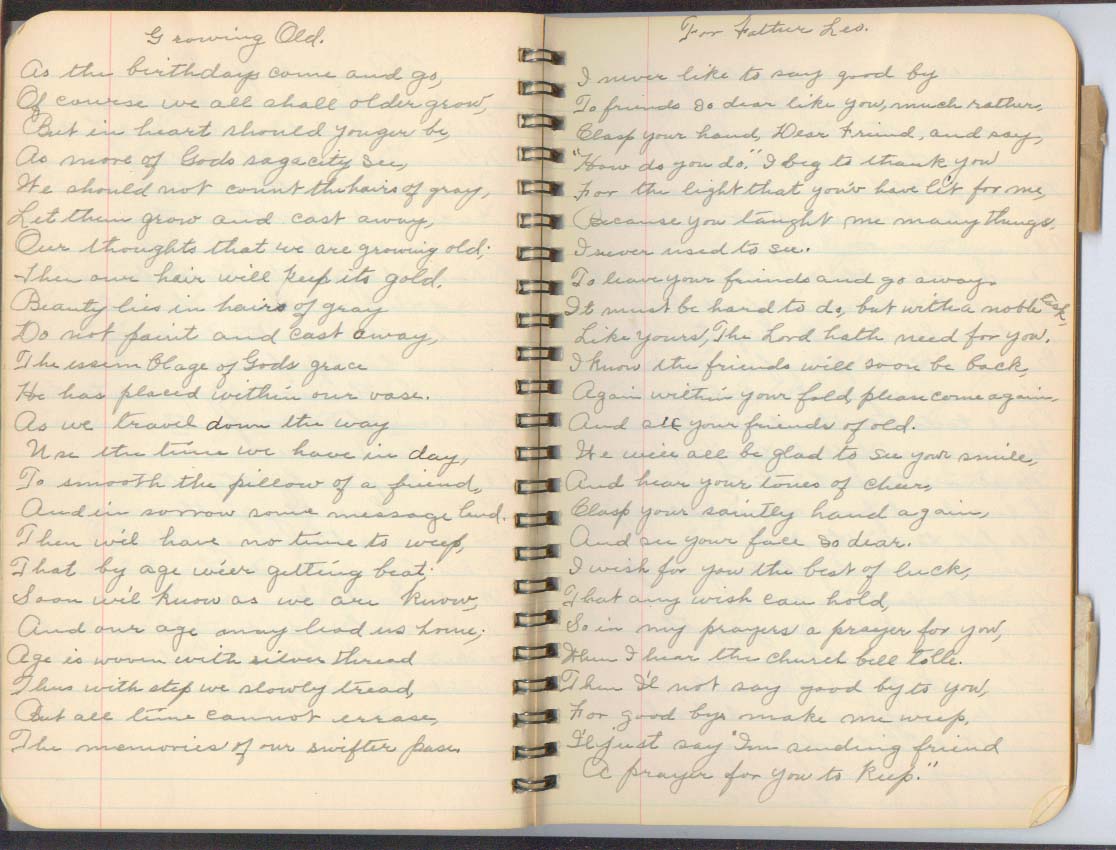 Growing Old.
As the birthdays come and go,
Of course we all shall older grow,
But in heart should younger be,
As more of Gods sagacity see,
We should not count the hairs of gray,
Let them grow and cast away,
Our thoughts that we are growing old;
Then our hair will keep its gold.
Beauty lies in hairs of gray
Do not paint and cast away,
The assemblage of Gods grace
He has placed within our vase.
As we travel down the way
Use the time we have in day,
To smooth the pillow of a friend,
And in sorrow some message lend.
Then we'l have no time to weep,
That by age we'er getting beat;
Soon we'l know as we are know,
And our age may lead us home;
Age is woven with silver thread
Thus with step we slowly tread,
But all time cannot errase,
The memories of our swifter pase.
For Father Leo.
I never like to say good by
To friends so dear like you, much rather,
Clasp your hand, Dear Friend, and say,
"How do you do." I beg to thank you
For the light that you'v have lit for me,
Because you taught me many things,
I never used to see.
To leave your friends and go away
It must be hard to do, but with a noble task,
Like yours, The Lord hath need for you.
I know the friends will soon be back,
Again within your fold, please come again,
And see your friends of old.
We will all be glad to see your smile,
And hear your tones of cheer,
Clasp your saintly hand again,
And see your face so dear.
I wish for you the best of luck,
That any wish can hold,
So in my prayers a prayer for you,
When I hear the church bell tolle.
Then I'l not say good by to you,
For good bys make me weep,
I'l just say "I'm sending friend
A prayer for you to keep."